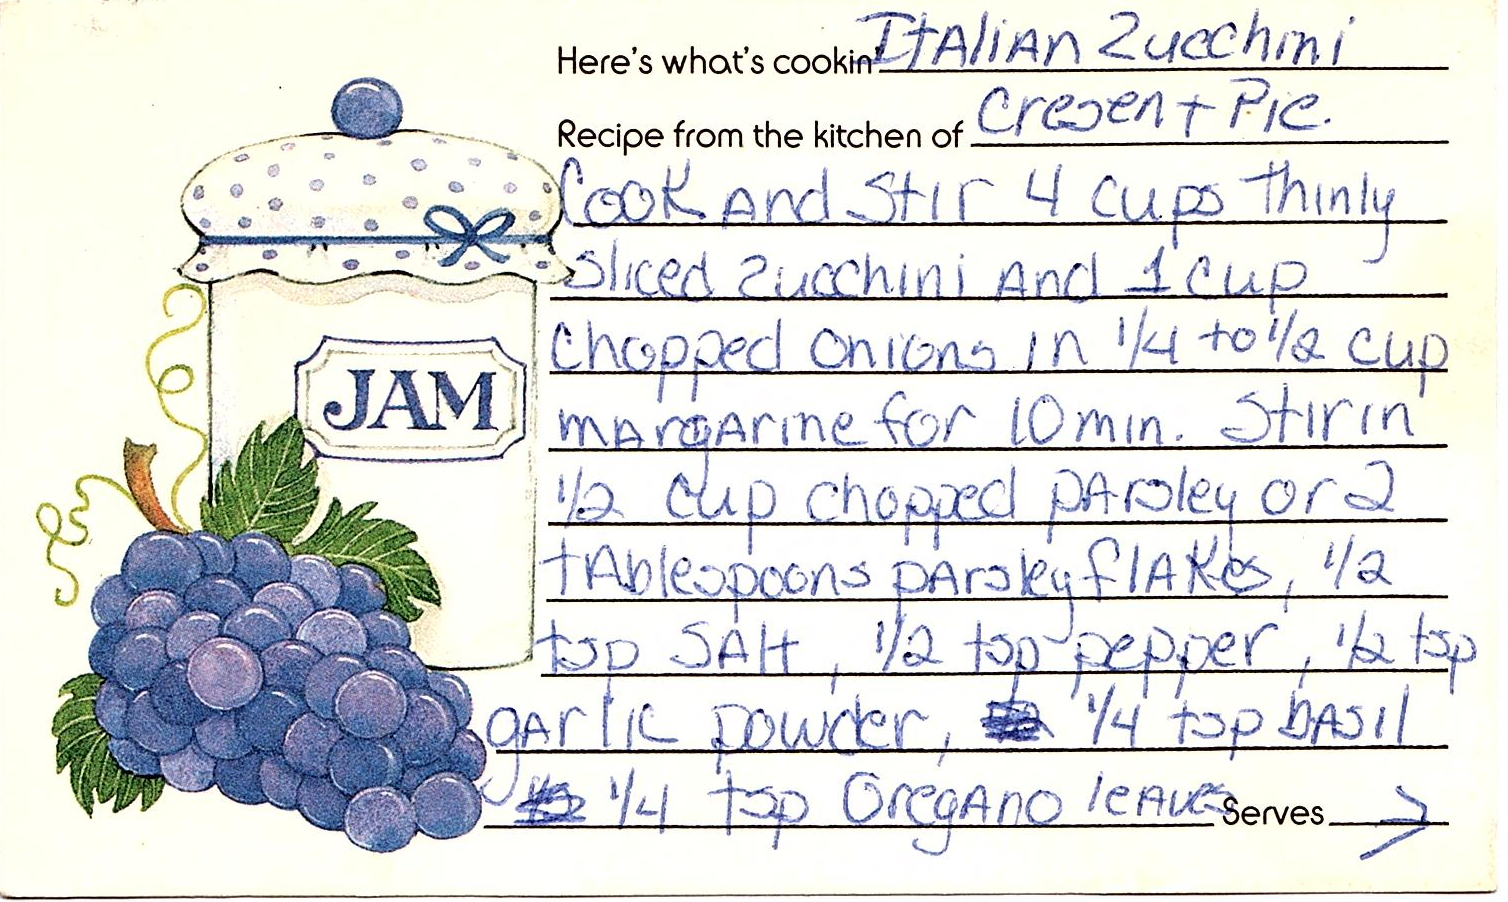 Here's what's cookin' Italian Zucchini
Recipe from the kitchen of Cresent Pie.
Cook and Stir 4 cups thinly
sliced zucchini and 1 cup
chopped onions in 1/4 to 1/2 cup
margarine for 10 min. Stir in
1/2 cup chopped parsley or 2
tablespoons parsley flakes, 1/2
tsp salt, 1/2 tsp pepper, 1/2 tsp
garlic powder, 1/4 tsp basil
1/4 tsp Oregano leaves Serves →
JAM